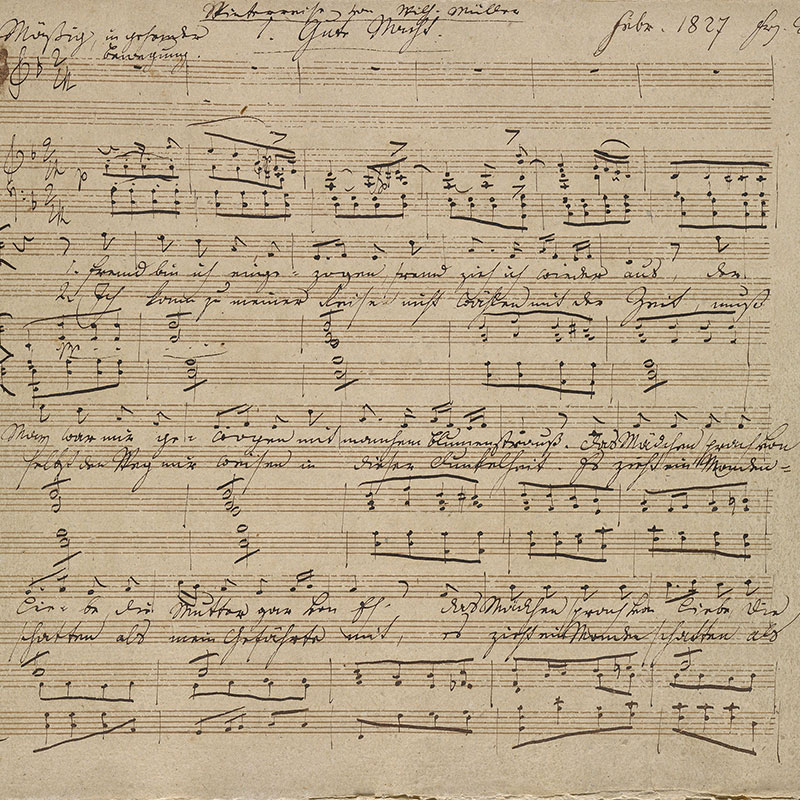 Winterreise von Wilh. Müller
Mäßig, in gehender 1. Gute Nacht. Febr. 1827
Bewegung.
1. Fremd bin ich einge- zogen, fremd zieh ich wieder aus, der
2. Ich kann zu meiner Reise nicht wählen mit der Zeit, muß
May war mir ge- wogen mit manchem Blumenstrauß. Das Mädchen sprach von
selbst den Weg mir weisen in dieser Dunkelheit. Es zieht ein Monden-
Lie- be die Mutter gar von Eh- das Mädchen sprach von Liebe die
schatten als mein Gefährte mit, es zieht ein Mondenschatten als